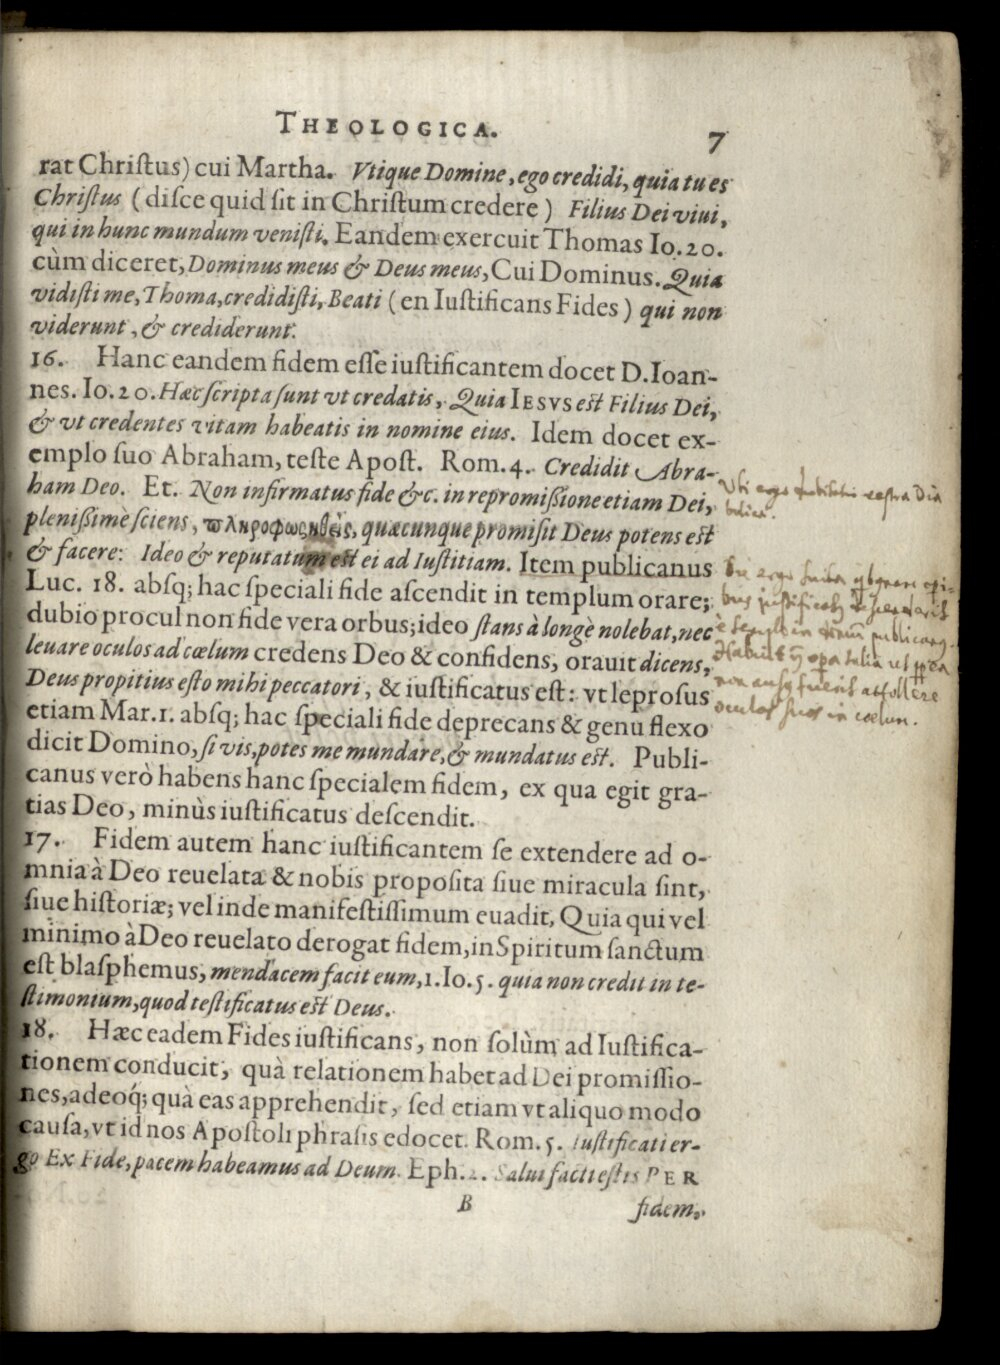 THEOLOGICA. 7
rat Chriſtus) cui Martha. Vtique Domine, ego credidi, quia tu es
Chriſtus (diſce quid ſit in Chriſtum credere) Filius Dei viui,
qui in hunc mundum veniſti. Eandem exercuit Thomas Io. 20.
cùm diceret, Dominus meus & Deus meus, Cui Dominus. Quia
vidiſti me, Thoma, credidiſti, Beati (en Iuſtificans Fides) qui non
viderunt, & crediderunt.
16. Hanc eandem fidem eſſe iuſtificantem docet D. Ioan-
nes. Io. 20. Hæc ſcripta ſunt vt credatis, Quia IESVS eſt Filius Dei,
& vt credentes vitam habeatis in nomine eius. Idem docet ex-
emplo ſuo Abraham, teſte Apoſt. Rom. 4. Credidit Abra-
ham Deo. Et. Non infirmatus fide &c. in repromißione etiam Dei,
pleniſſimè ſciens, πληροφωρηθεὶς, quæcunque promiſit Deus potens eſt
& facere: Ideo & reputatum eſt ei ad Iuſtitiam. Item publicanus
Luc. 18. abſq; hac ſpeciali fide aſcendit in templum orare;
dubio procul non fide vera orbus; ideo ſtans à longè nolebat, nec
leuare oculos ad cœlum credens Deo & confidens, orauit dicens,
Deus propitius eſto mihi peccatori, & iuſtificatus eſt: vt leproſus
etiam Mar. 1. abſq; hac ſpeciali fide deprecans & genu flexo
dicit Domino, ſi vis, potes me mundare, & mundatus eſt. Publi-
canus verò habens hanc ſpecialem fidem, ex qua egit gra-
tias Deo, minùs iuſtificatus deſcendit.
17. Fidem autem hanc iuſtificantem ſe extendere ad o-
mnia à Deo reuelata & nobis propoſita ſiue miracula ſint,
ſiue hiſtoriæ; vel inde manifeſtiſſimum euadit, Quia qui vel
minimo à Deo reuelato derogat fidem, in Spiritum ſanctum
eſt blaſphemus, mendacem facit eum, 1. Io. 5. quia non credit in te-
ſtimonium, quod teſtificatus eſt Deus.
18. Hæc eadem Fides iuſtificans, non ſolùm ad Iuſtifica-
tionem conducit, quà relationem habet ad Dei promiſſio-
nes, adeoq́; quà eas apprehendit, ſed etiam vt aliquo modo
cauſa, vt id nos Apoſtoli phraſis edocet. Rom. 5. Iuſtificati er-
go Ex Fide, pacem habeamus ad Deum. Eph. 2. Salui facti eſtis PER
B fidem,
Vbi ergo vestra
ergo
publicanus
talia ut
attollere
oculos suos in cœlum.